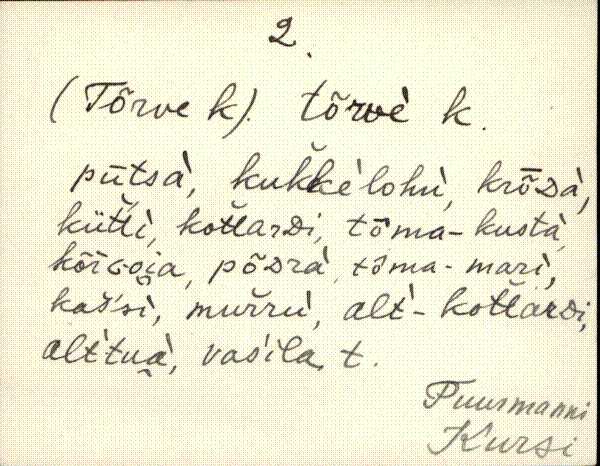 2.
(Tõrve k). tõrvè k.
pūtsà, kukkèlohù, krȭᴅà,
kütì, kottarᴅi, tõma-kustà,
põᴅrà, tõma-marì,
kaš́sì, murrù, alt̀-kottarᴅi,
alt́tuà, vaśila t.
Puurmanni
Kursi